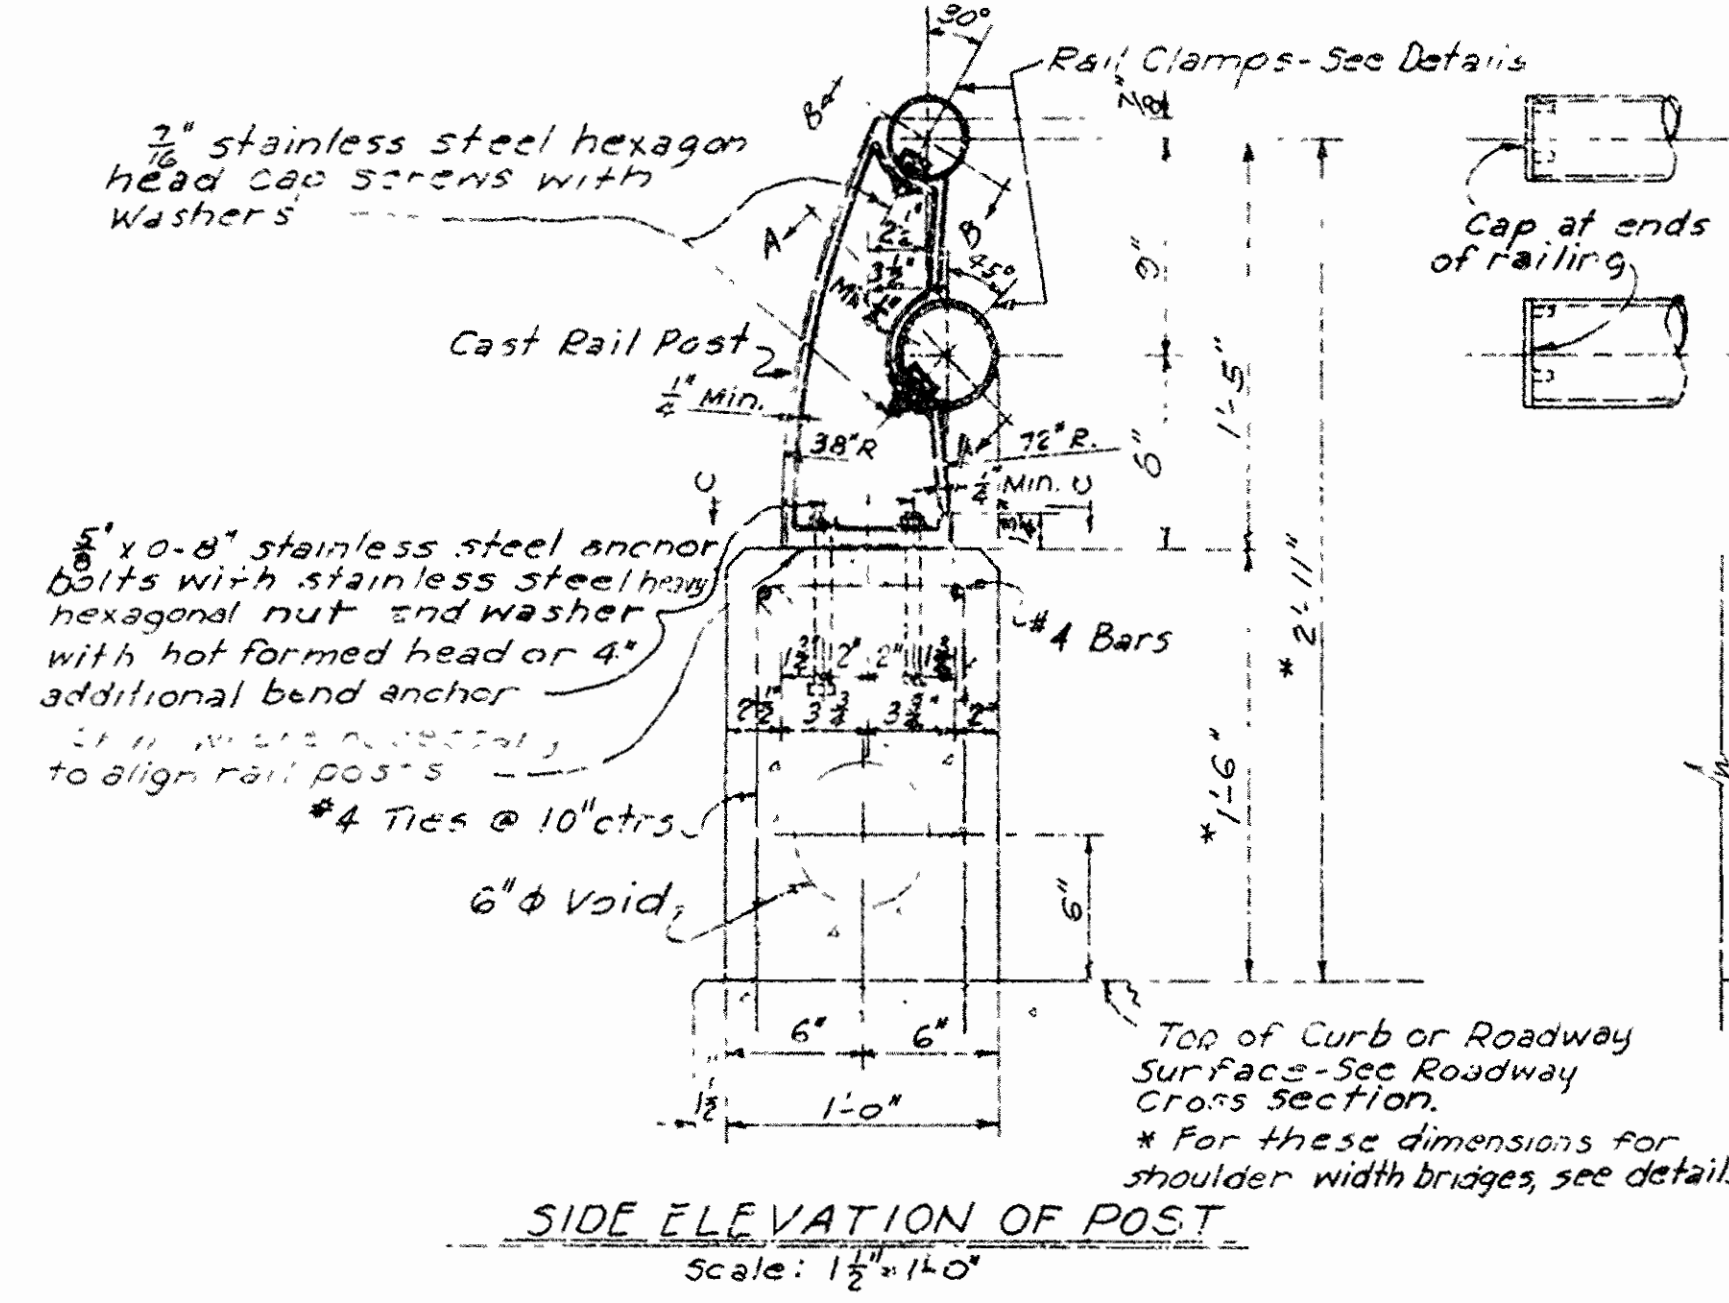 30°
Rail Clamps-See Details
7/8"
B
7/16" stainless steel hexagon
head cap screws with
washers
A
B
45°
9"
Cap at ends
of railing
Cast Rail Post
1/4" Min.
38"R
72"R.
Min.
6"
1'-5"
C
C
5/8" x 0-8" stainless steel anchor
bolts with stainless steel heavy
hexagonal nut and washer
with hot formed head or 4"
additional bend anchor
to align rail posts
#4 Bars
2" 2"
* 2'-11"
* 1'-6"
#4 Ties @ 10"ctrs.
6"ϕ Void
6"
6" 6"
1'-0"
Top of Curb or Roadway
Surface-See Roadway
Cross Section.
* For these dimensions for
shoulder width bridges, see details
SIDE ELEVATION OF POST
Scale: 1 1/2"=1'-0"